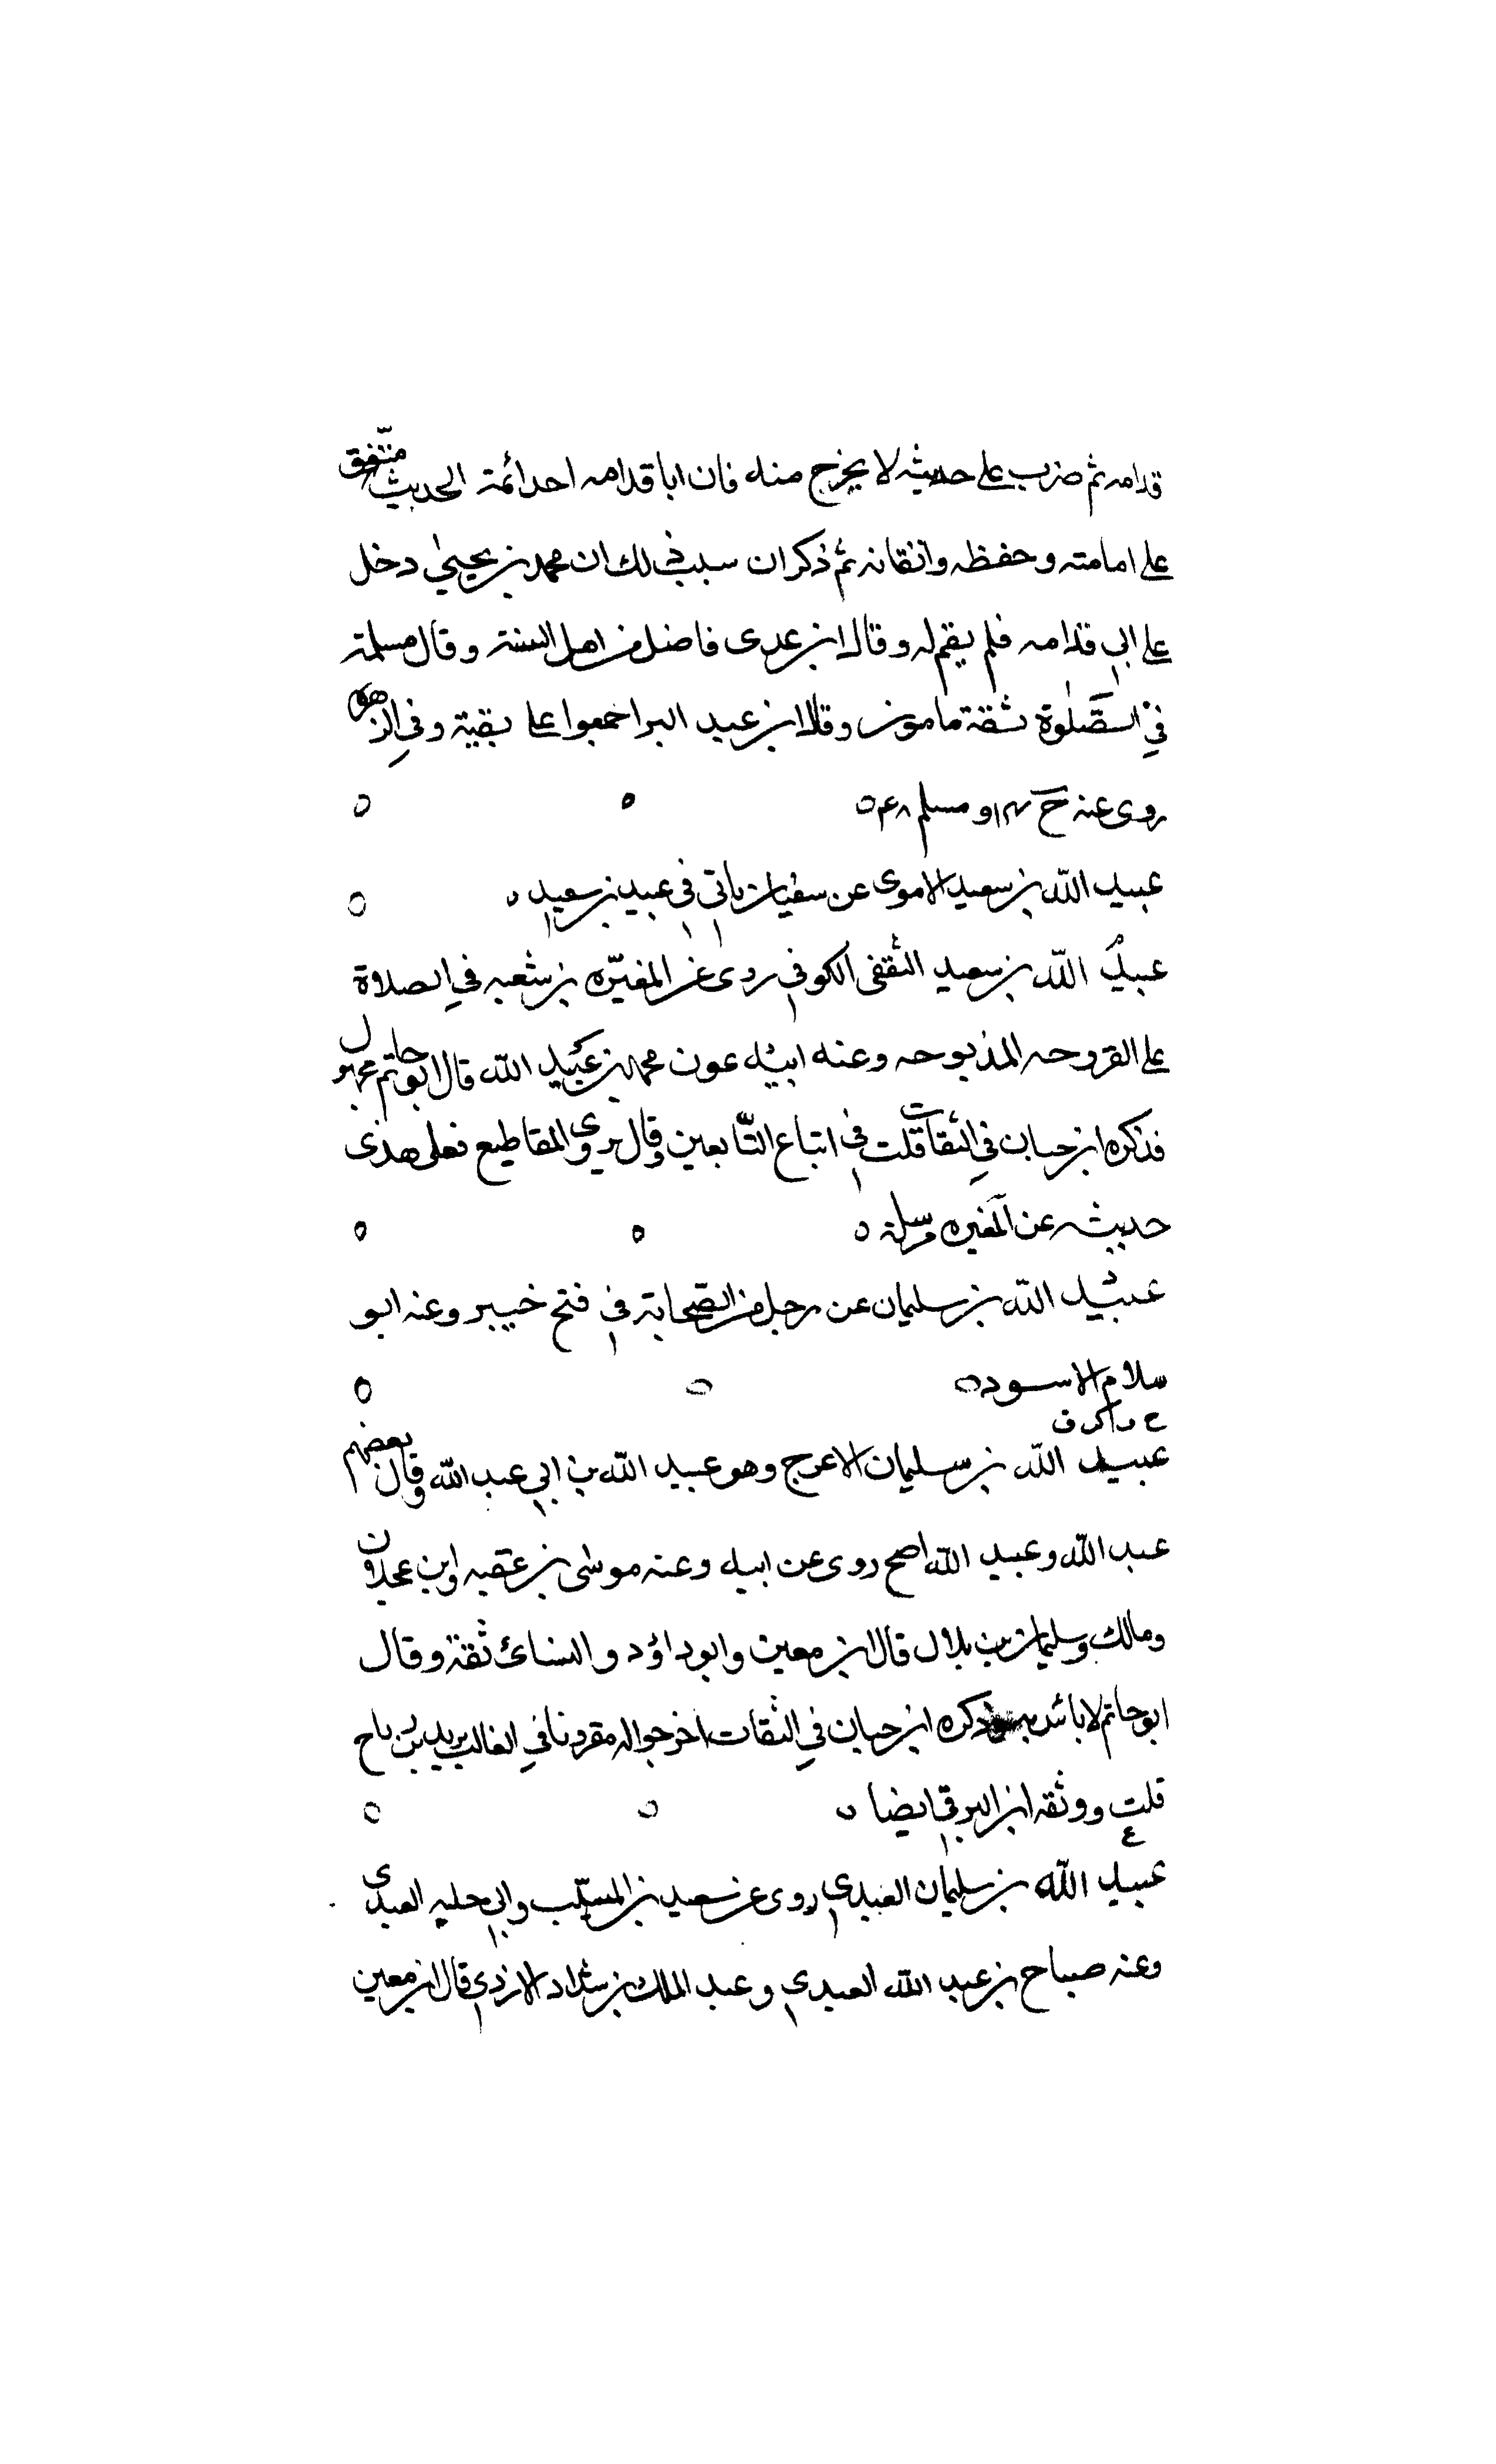 قدامه ثم ضرب على حديثه لا يخرج منه فان ابا قدامه احد ائمة الحديث متّفق
على امامته وحفظه واتقانه ثم ذكر ان سبب ذلك ان محمد بن يحيى دخل
على ابي قدامه فلم يقم له وقال ابن عدى فاضل من اهل السنة وقال مسلمة
في الصّلوة ثقة مامون وقال ابن عبد البر اجمعوا على بقية وفي الزهرة
روى عنه خ ۱۳ و مسلم ۴۸
عبيد الله بن سعيد الاموى عن سفيان ياتي في عبيد بن سعيد
عبيد الله بن سعيد الثقفى الكوفي روى عن المغيره بن شعبه في الصلاة
على القروحه المذبوحه وعنه ابنه عون محمد بن عبيد الله قال ابو حاتم مجهول
فذكره ابن حبان في الثقات قلت في اتباع التّابعين وقال يروى المقاطيع فعلى هذى
حديثه عن المغيره مرسلة
عبيد الله بن سليمان عن رجل من الصّحابة في فتح خيبر وعنه ابو
سلام الاسود
عبيد الله بن سليمان الاعرج وهو عبيد الله بن ابي عبد الله وقال بعضهم
عبد الله وعبيد الله اصح روى عن ابيه وعنه موسى بن عقبه وابن عجلان
ومالك وسليمان بن بلال قال ابن معين وابو داؤد والنسائ ثقة وقال
ابو حاتم لا باس به وذكره ابن حبان في الثقات اخرجوا له مقرونا في الغالب بزيد بن رباح
قلت ووثقه ابن البرقي ايضا
عبيد الله بن سليمان العبدي روى عن سعيد بن المسيّب وابي حليه العبدى
وعنه صباح بن عبد الله العبدي وعبد الملك بن شداد الازدي قال ابن معين